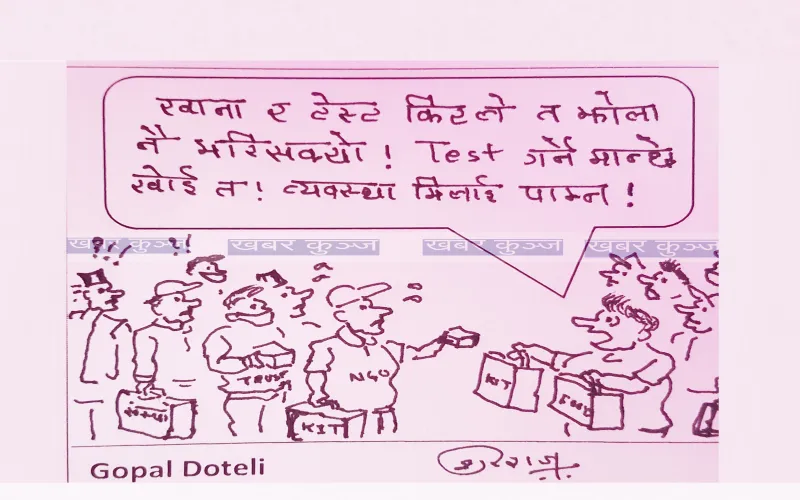 खाना र टेस्ट किटले त झोला
नै भरिसक्यो ! Test गर्ने मान्छे
खोई त ! व्यवस्था मिलाई पाम्न !
खबर कुञ्ज खबर कुञ्ज खबर कुञ्ज खबर कुञ्ज
TRUST
NGO
KIT
KIT
Gopal Doteli